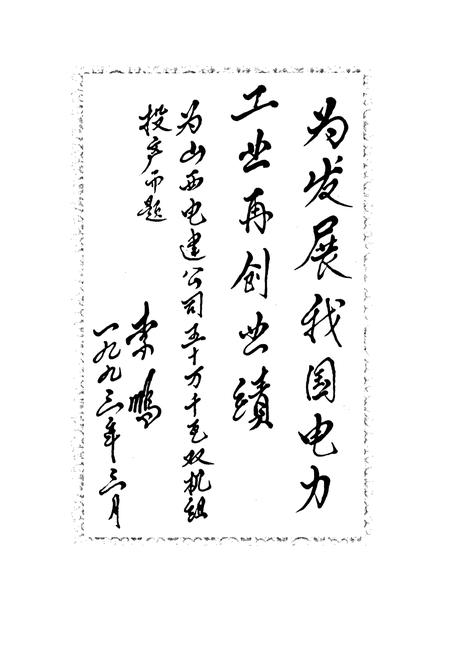 为发展我国电力
工业再创业绩
为山西电建公司五十万千瓦双机组
投产而题
李鹏
一九九三年三月